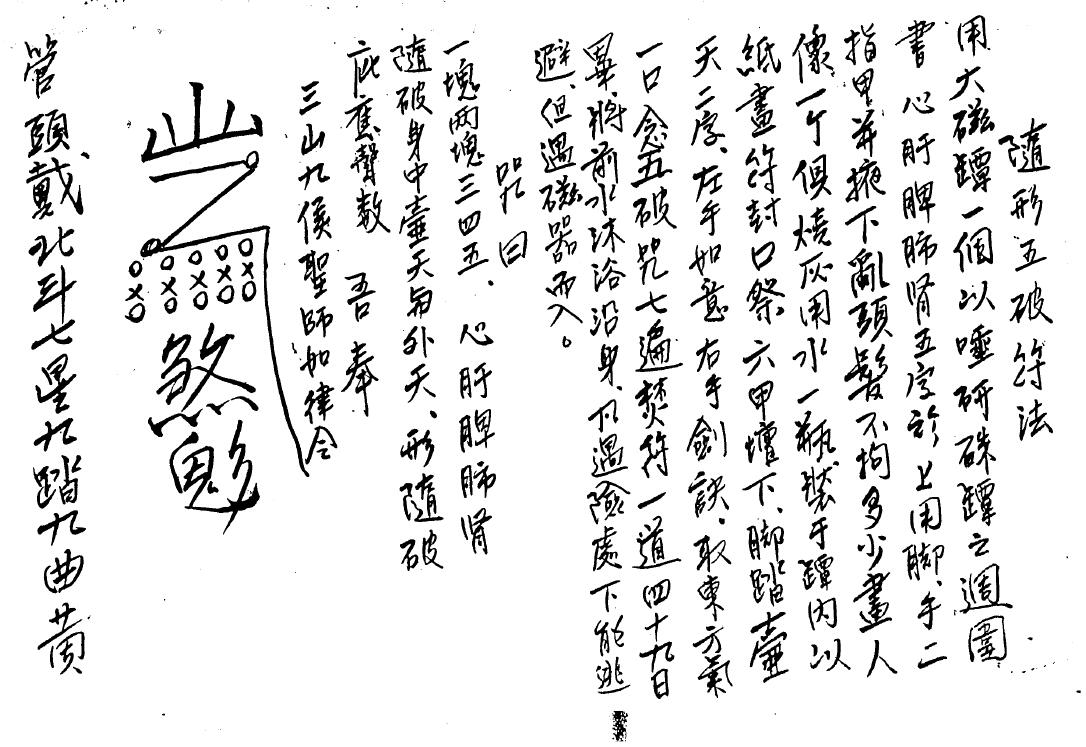 隨形五破符法
用大磁罈一個以唾研硃罈之週圍
書心肝脾肺肾五字於上用脚、手二
指甲并掖下亂頭髮不拘多少畫人
像一个俱燒灰用水一瓶裝于罈内以
紙畫符封口祭六甲壇下、脚踏壷
天二字、左手如意右手劍訣、取東方氣
一口念五破咒七遍焚符一道四十九日
畢、將前水沐浴沿身、凡遇險處下能逃
避、但遇磁器而入。
咒曰
一塊两塊三四五、心肝脾肺肾
隨破身中壷天另外天、形隨破
此應聲数 吾奉
三山九侯聖師如律令
煞鬽
管頭戴北斗七星九踏九曲黄